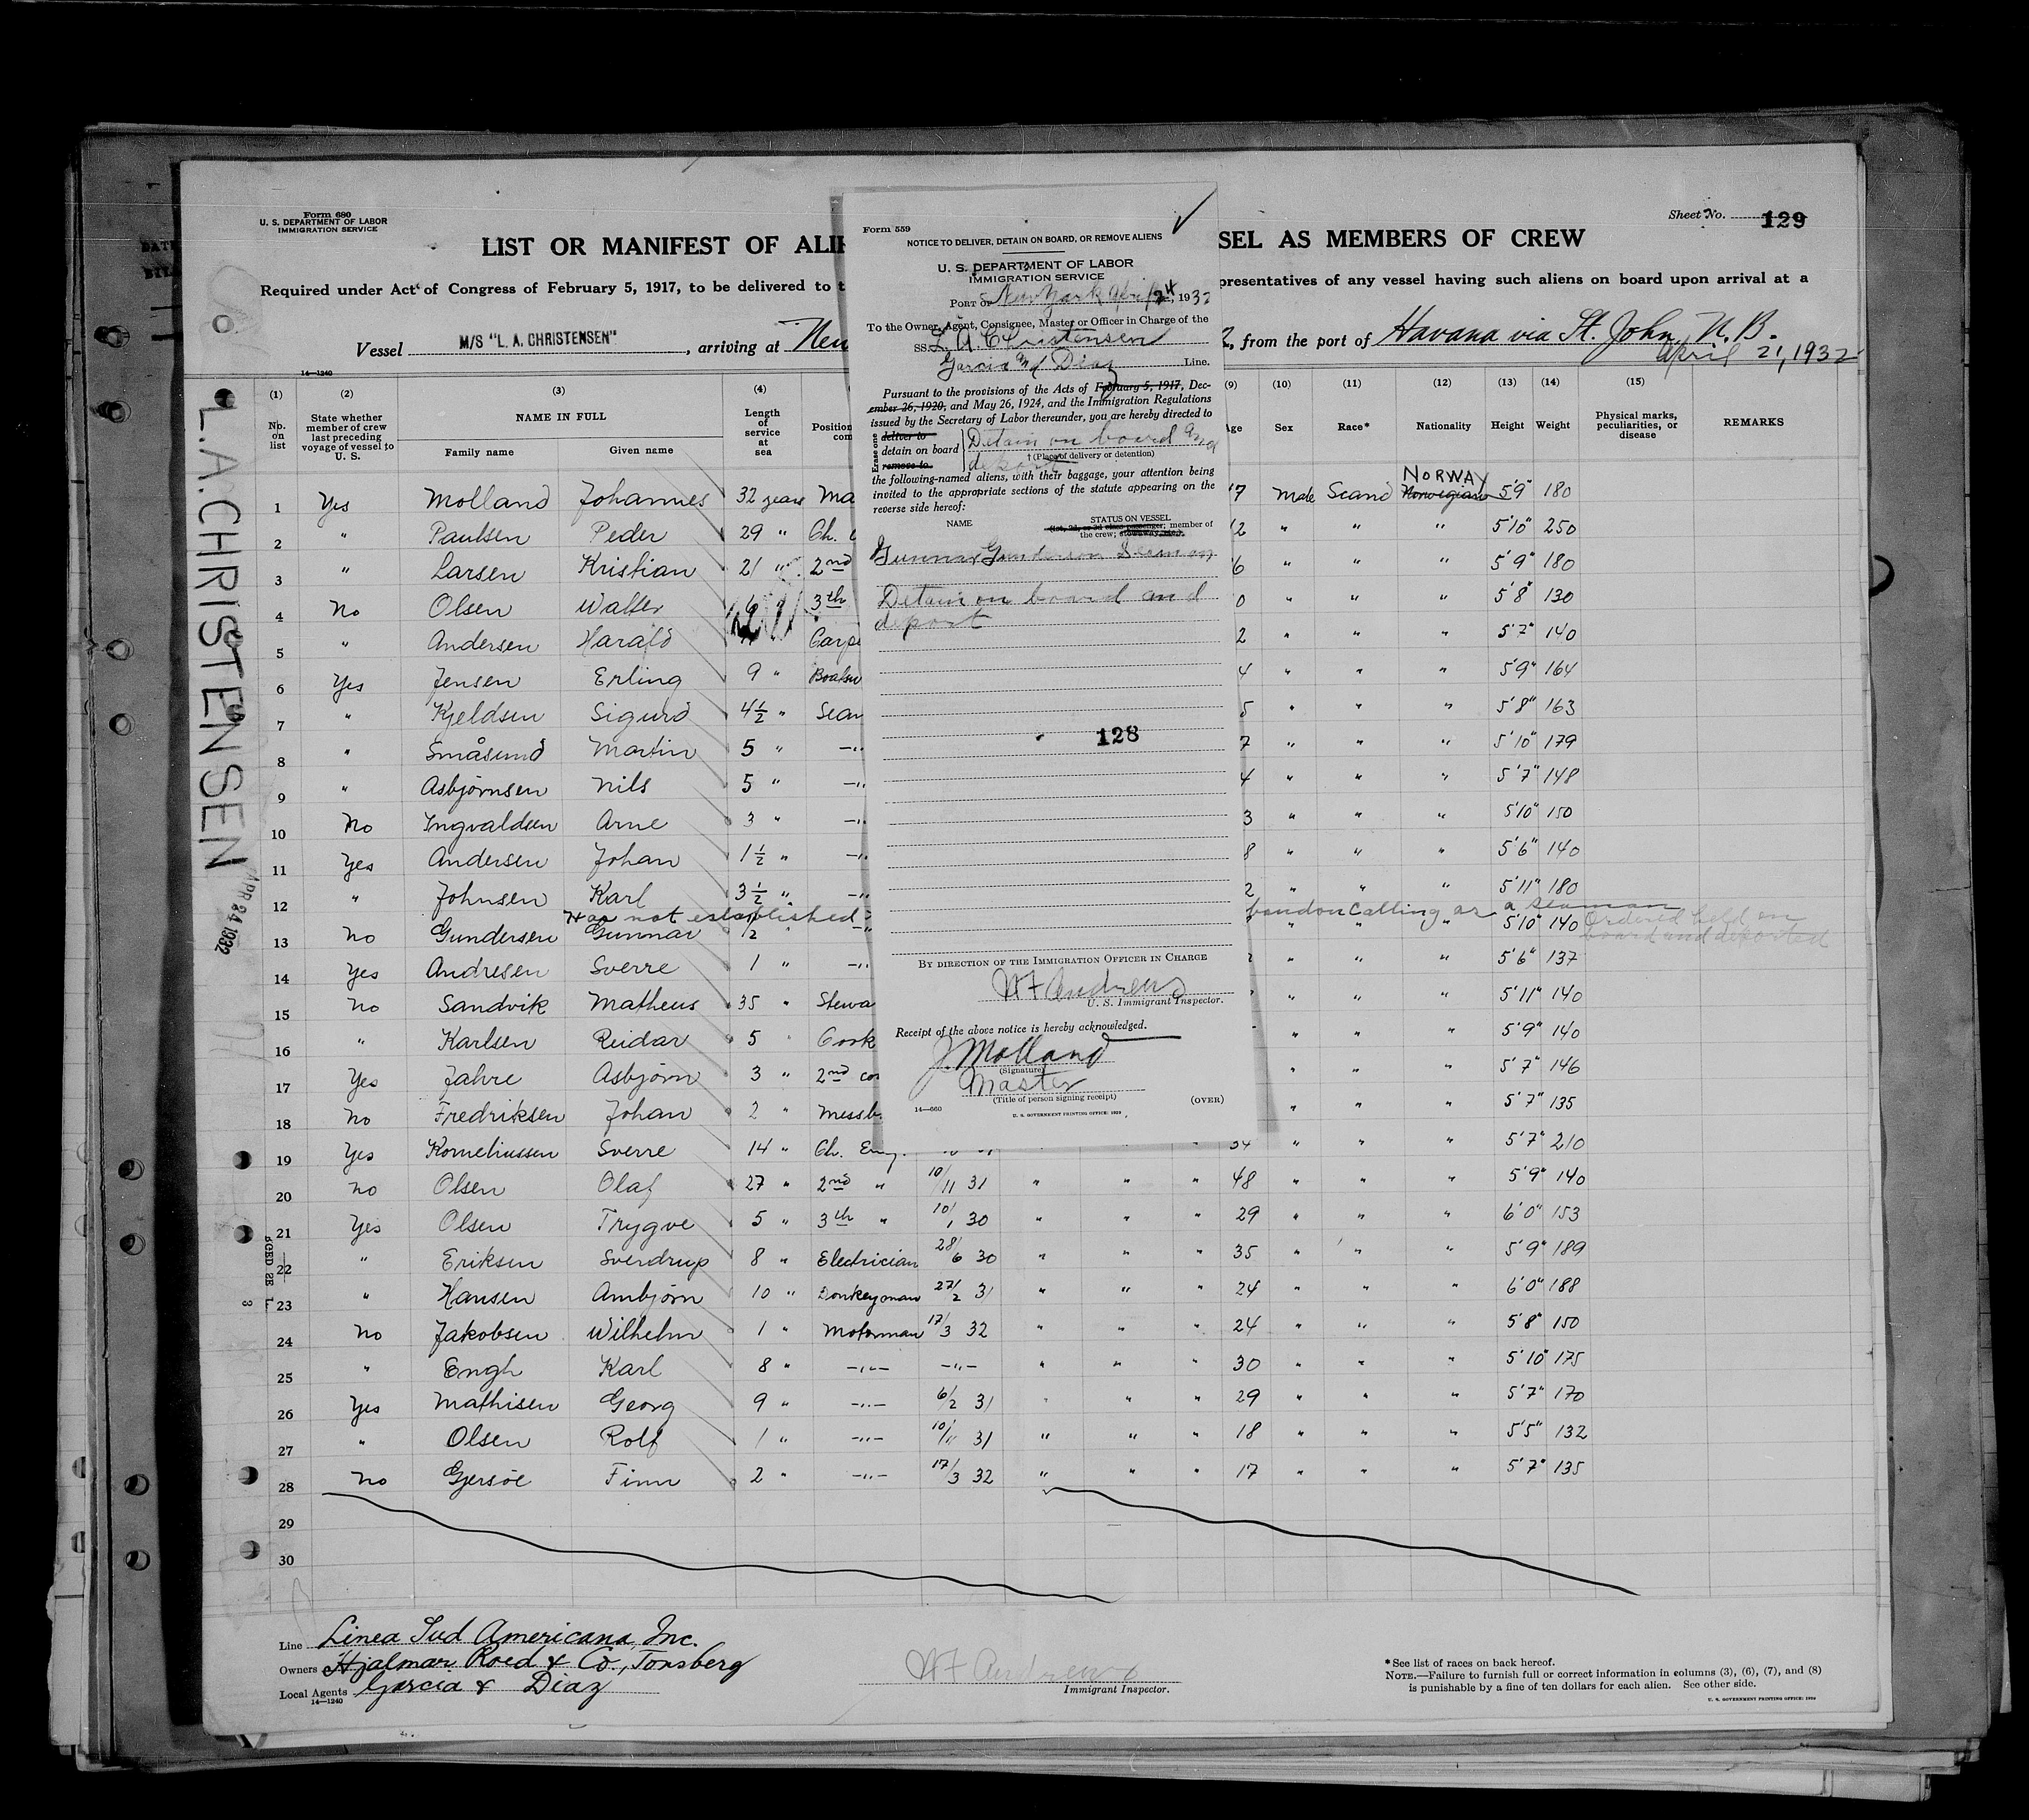 Form 680
U. S. DEPARTMENT OF LABOR
IMMIGRATION SERVICE
Sheet No. 129
LIST OR MANIFEST OF ALIE
SEL AS MEMBERS OF CREW
Required under Act of Congress of February 5, 1917, to be delivered to t
presentatives of any vessel having such aliens on board upon arrival at a
Vessel M/S "L. A. CHRISTENSEN", arriving at New
2, from the port of Havana via St. John, N. B.
April 21, 1932
14—1240
L.A.CHRISTENSEN
APR 24 1932
(1) (2) (3) (4) (9) (10) (11) (12) (13) (14) (15)
No. on list
State whether member of crew last preceding voyage of vessel to U. S.
NAME IN FULL
Family name Given name
Length of service at sea
Position
com
Age Sex Race* Nationality Height Weight
Physical marks, peculiarities, or disease
REMARKS
1 Yes Molland Johannes 32 years Ma 7 Male Scand Norwegian NORWAY 5'9" 180
2 " Paulsen Peder 29 " Ch. 2 " " " 5'10" 250
3 " Larsen Kristian 21 " 2nd 6 " " " 5'9" 180
4 No Olsen Walter 3th 0 " " " 5'8" 130
5 " Andersen Harald Carpe 2 " " " 5'7" 140
6 Yes Jensen Erling 9 " Boatsw 4 " " " 5'9" 164
7 " Kjeldsen Sigurd 4½ " Sean 5 " " " 5'8" 163
8 " Småsund Martin 5 " —"— 7 " " " 5'10" 179
9 " Asbjørnsen Nils 5 " —"— 4 " " " 5'7" 148
10 No Ingvaldsen Arne 3 " —"— 3 " " " 5'10" 150
11 Yes Andersen Johan 1½ " —"— 8 " " " 5'6" 140
12 " Johnsen Karl 3½ " —"— 2 " " " 5'11" 180
Has not established
bandon calling as a seaman
13 No Gundersen Gunnar ½ " —"— " " " 5'10" 140 Ordered held on board and deported
14 Yes Andresen Sverre 1 " —"— " " " 5'6" 137
15 No Sandvik Matheus 35 " Stewa " " " 5'11" 140
16 " Karlsen Reidar 5 " Cook " " " 5'9" 140
17 Yes Jahre Asbjørn 3 " 2nd co " " " 5'7" 146
18 No Fredriksen Johan 2 " Messb " " " 5'7" 135
19 Yes Korneliussen Sverre 14 " Ch. Eng. 34 " " " 5'7" 210
20 No Olsen Olaf 27 " 2nd " 10/11 31 " " " 48 " " " 5'9" 140
21 Yes Olsen Trygve 5 " 3th " 10/1 30 " " " 29 " " " 6'0" 153
22 " Eriksen Sverdrup 8 " Electrician 28/6 30 " " " 35 " " " 5'9" 189
23 " Hansen Arnbjørn 10 " Donkeyman 27/2 31 " " " 24 " " " 6'0" 188
24 No Jakobsen Wilhelm 1 " Motorman 17/3 32 " " " 24 " " " 5'8" 150
25 " Engh Karl 8 " —"— —"— " " " 30 " " " 5'10" 175
26 Yes Mathisen Georg 9 " —"— 6/2 31 " " " 29 " " " 5'7" 170
27 " Olsen Rolf 1 " —"— 10/11 31 " " " 18 " " " 5'5" 132
28 No Gjersøe Finn 2 " —"— 17/3 32 " " " 17 " " " 5'7" 135
29
30
Line Linea Sud Americana, Inc.
Owners Hjalmar Roed & Co., Tonsberg
Local Agents Garcia & Diaz
14—1240
W F Andrews
Immigrant Inspector.
*See list of races on back hereof.
NOTE.—Failure to furnish full or correct information in columns (3), (6), (7), and (8)
is punishable by a fine of ten dollars for each alien. See other side.
U. S. GOVERNMENT PRINTING OFFICE: 1929
Form 559
NOTICE TO DELIVER, DETAIN ON BOARD, OR REMOVE ALIENS
U. S. DEPARTMENT OF LABOR
IMMIGRATION SERVICE
PORT OF New York April 24, 1932
To the Owner, Agent, Consignee, Master or Officer in Charge of the
SS. L A Christensen
Garcia and Diaz Line.
Pursuant to the provisions of the Acts of February 5, 1917, Dec-
ember 26, 1920, and May 26, 1924, and the Immigration Regulations
issued by the Secretary of Labor thereunder, you are hereby directed to
Erase one
deliver to
detain on board
remove to
Detain on board and
† (Place of delivery or detention)
deport
the following-named aliens, with their baggage, your attention being
invited to the appropriate sections of the statute appearing on the
reverse side hereof:
NAME STATUS ON VESSEL
(1st, 2d, or 3d class passenger; member of
the crew; stowaway, etc.).
Gunnar Gunderson Seaman
Detain on board and
deport
128
BY DIRECTION OF THE IMMIGRATION OFFICER IN CHARGE
W F Andrews
U. S. Immigrant Inspector.
Receipt of the above notice is hereby acknowledged.
J. Molland
(Signature)
Master
(Title of person signing receipt)
14—660
(OVER)
U. S. GOVERNMENT PRINTING OFFICE: 1929